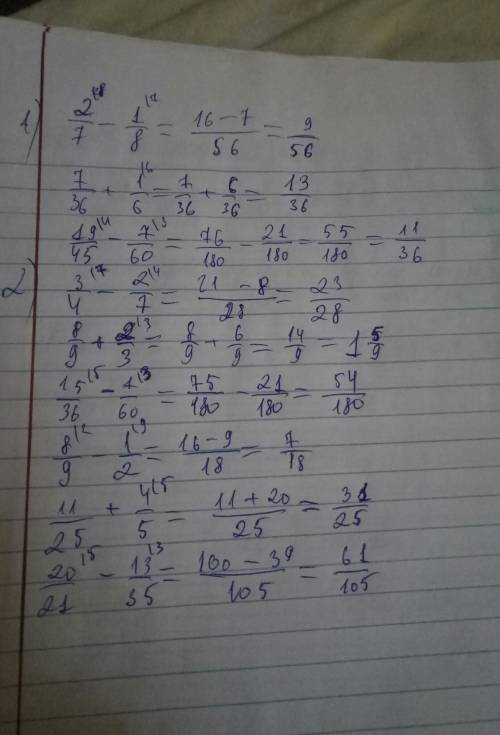 1) 2/7 \8 - 1/8 \7 = (16-7)/56 = 9/56
7/36 + 1/6 \6 = 7/36 + 6/36 = 13/36
19/45 \4 - 7/60 \3 = 76/180 - 21/180 = 55/180 = 11/36
2) 3/4 \7 - 2/7 \4 = (21-8)/28 = 23/28
8/9 + 2/3 \3 = 8/9 + 6/9 = 14/9 = 1 5/9
15/36 \5 - 7/60 \3 = 75/180 - 21/180 = 54/180
8/9 \2 - 1/2 \9 = (16-9)/18 = 7/18
11/25 + 4/5 \5 = (11+20)/25 = 31/25
20/21 \5 - 13/35 \3 = (100-39)/105 = 61/105